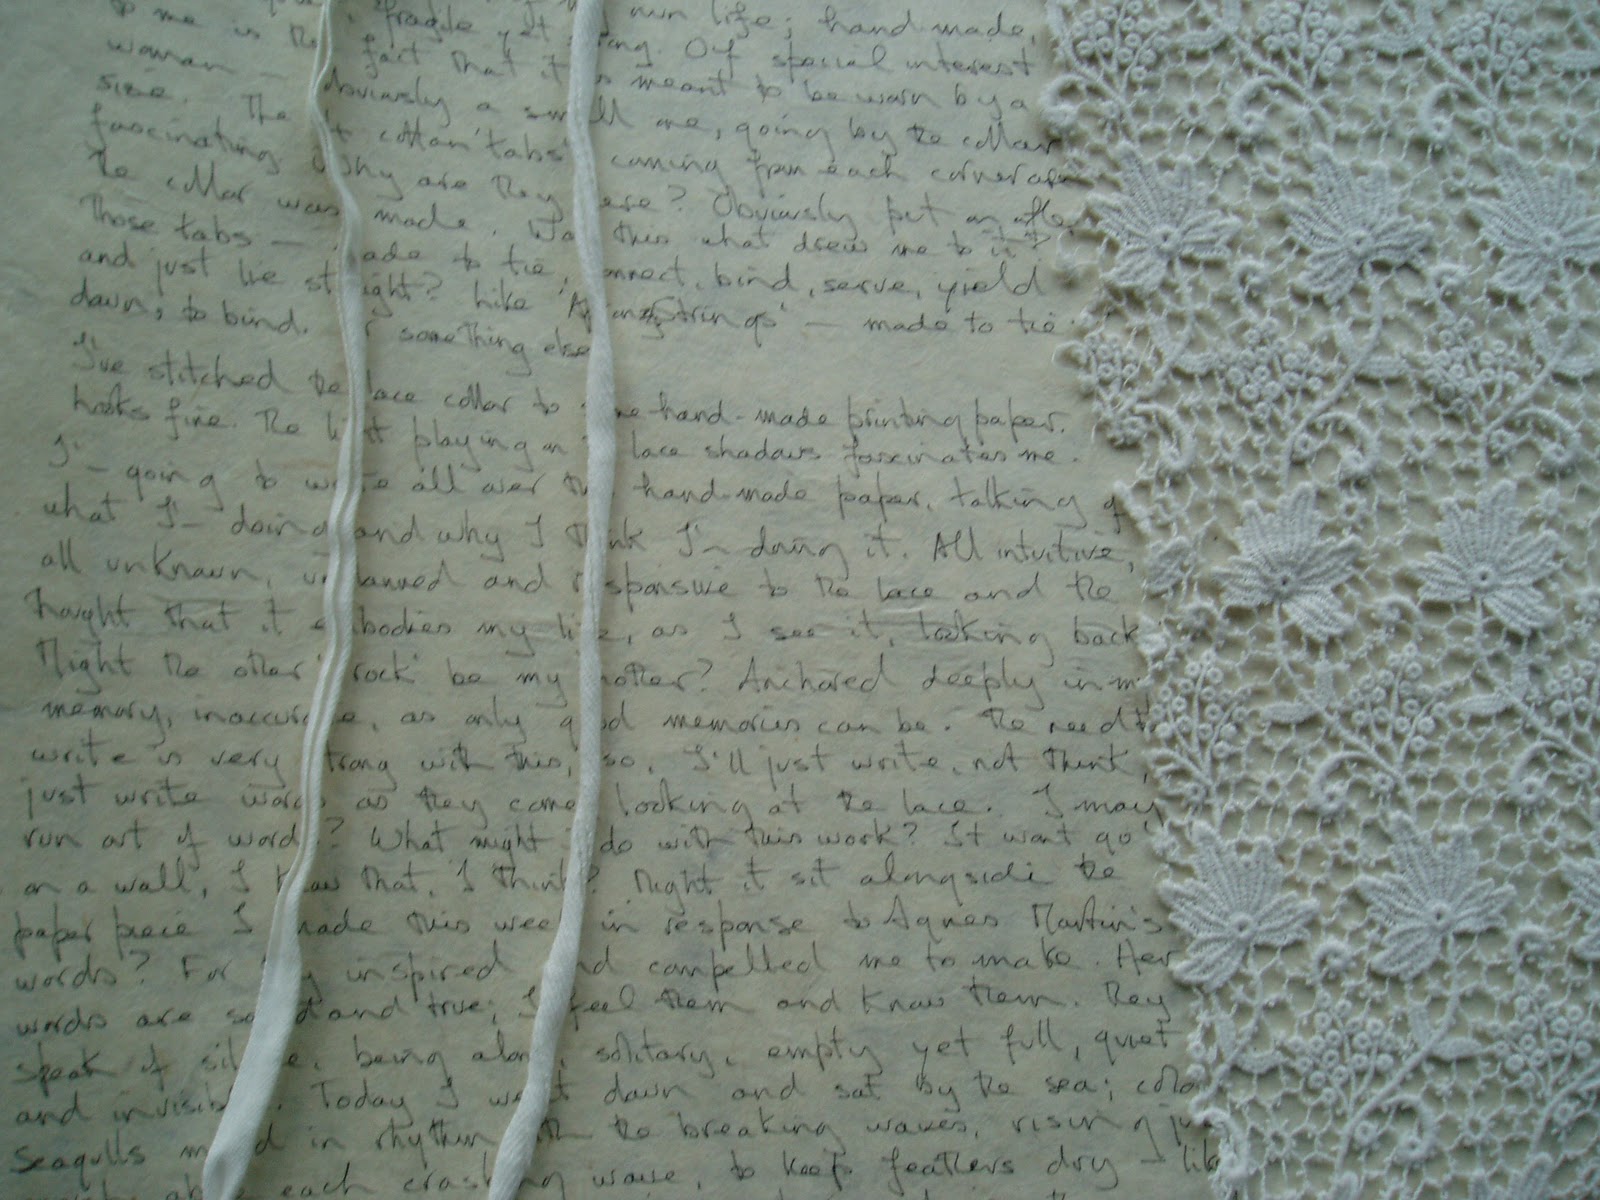 to me is the fragile yet strong. Of special interest
own life; hand-made,
woman — fact that it is meant to be worn by a
size. The obviously a small one, going by the collar
fascinating cotton 'tabs' coming from each corner are
the collar was Why are they there? Obviously put on after
made. Was this what drew me to it?
Those tabs — made to tie, connect, bind, serve, yield
and just lie straight? Like 'Apron Strings' — made to tie
down, to bind. Or something else
I've stitched the lace collar to some hand-made printing paper.
looks fine. The light playing on the lace shadows fascinates me.
I'm going to write all over this hand-made paper, talking of
what I'm doing and why I think I'm doing it. All intuitive,
all unknown, unplanned and responsive to the lace and the
thought that it embodies my life, as I see it, looking back
Might the other 'rock' be my mother? Anchored deeply in my
memory, inaccurate, as only good memories can be. The need to
write is very strong with this, so, I'll just write, not think,
just write words as they come looking at the lace. I may
run out of words? What might I do with this work? It wont go
on a wall, I know that, I think? Might it sit alongside the
paper piece I made this week in response to Agnes Martin's
words? For they inspired and compelled me to make. Her
words are sound and true; I feel them and know them. They
speak of silence, being alone, solitary, empty yet full, quiet
and invisible. Today I went down and sat by the sea;
seagulls moved in rhythm with the breaking waves, rising just
each crashing wave, to keep feathers dry — like